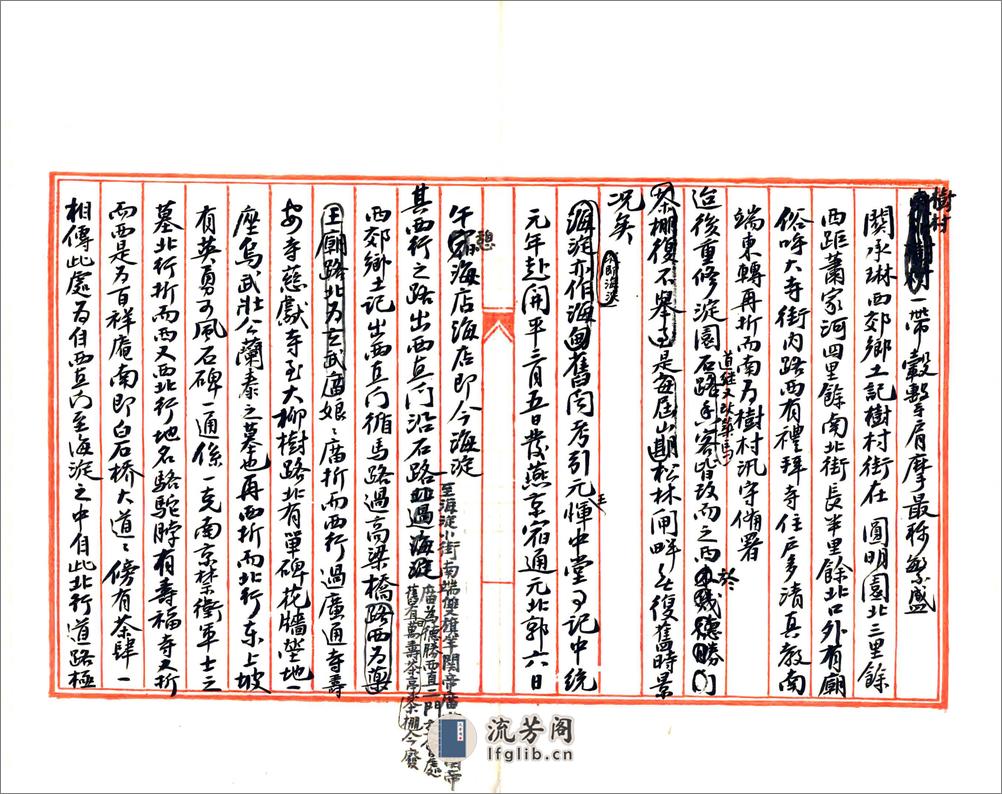 樹村
一帶轂擊肩摩最称繁盛
関承琳西郊鄉土記樹村街在圓明園北三里餘
西距蕭家河四里餘南北街長半里餘北口外有廟
俗呼大寺街内路西有禮拜寺住户多清真教南
端東轉再折而南为樹村汛守備署
迨後重修淀園石路香客皆改而之西
茶棚復不舉於是每届山期松林閘畔無復舊時景
况矣
海淀亦作海甸舊闻考引元王惲中堂事記中統
元年赴開平三月五日发燕京宿通元北郭六日
午憩海店海店即今海淀
其西行之路出西直門沿石路過海淀
至海淀小街南端雙旗竿関帝廟
廟为德勝西直二門
舊有萬壽茶亭茶棚今廢
西郊鄉土記出西直門循馬路過高梁橋路西为藥
王廟路北为玄武庙娘々廟折而西行過廣通寺壽
安寺慈獻寺至大柳樹路北有單碑花牆塋地一
座乌武壮公蘭泰之墓也再西折而北行东上坡
有英勇可風石碑一通係一克南京禁衛軍士之
墓北行折而西又西北行地名駱駝脖有壽福寺又折
而西是为百祥庵南即白石橋大道々傍有茶肆一
相傳此處为自西直门至海淀之中自此北行道路極
流芳阁
lfglib.cn